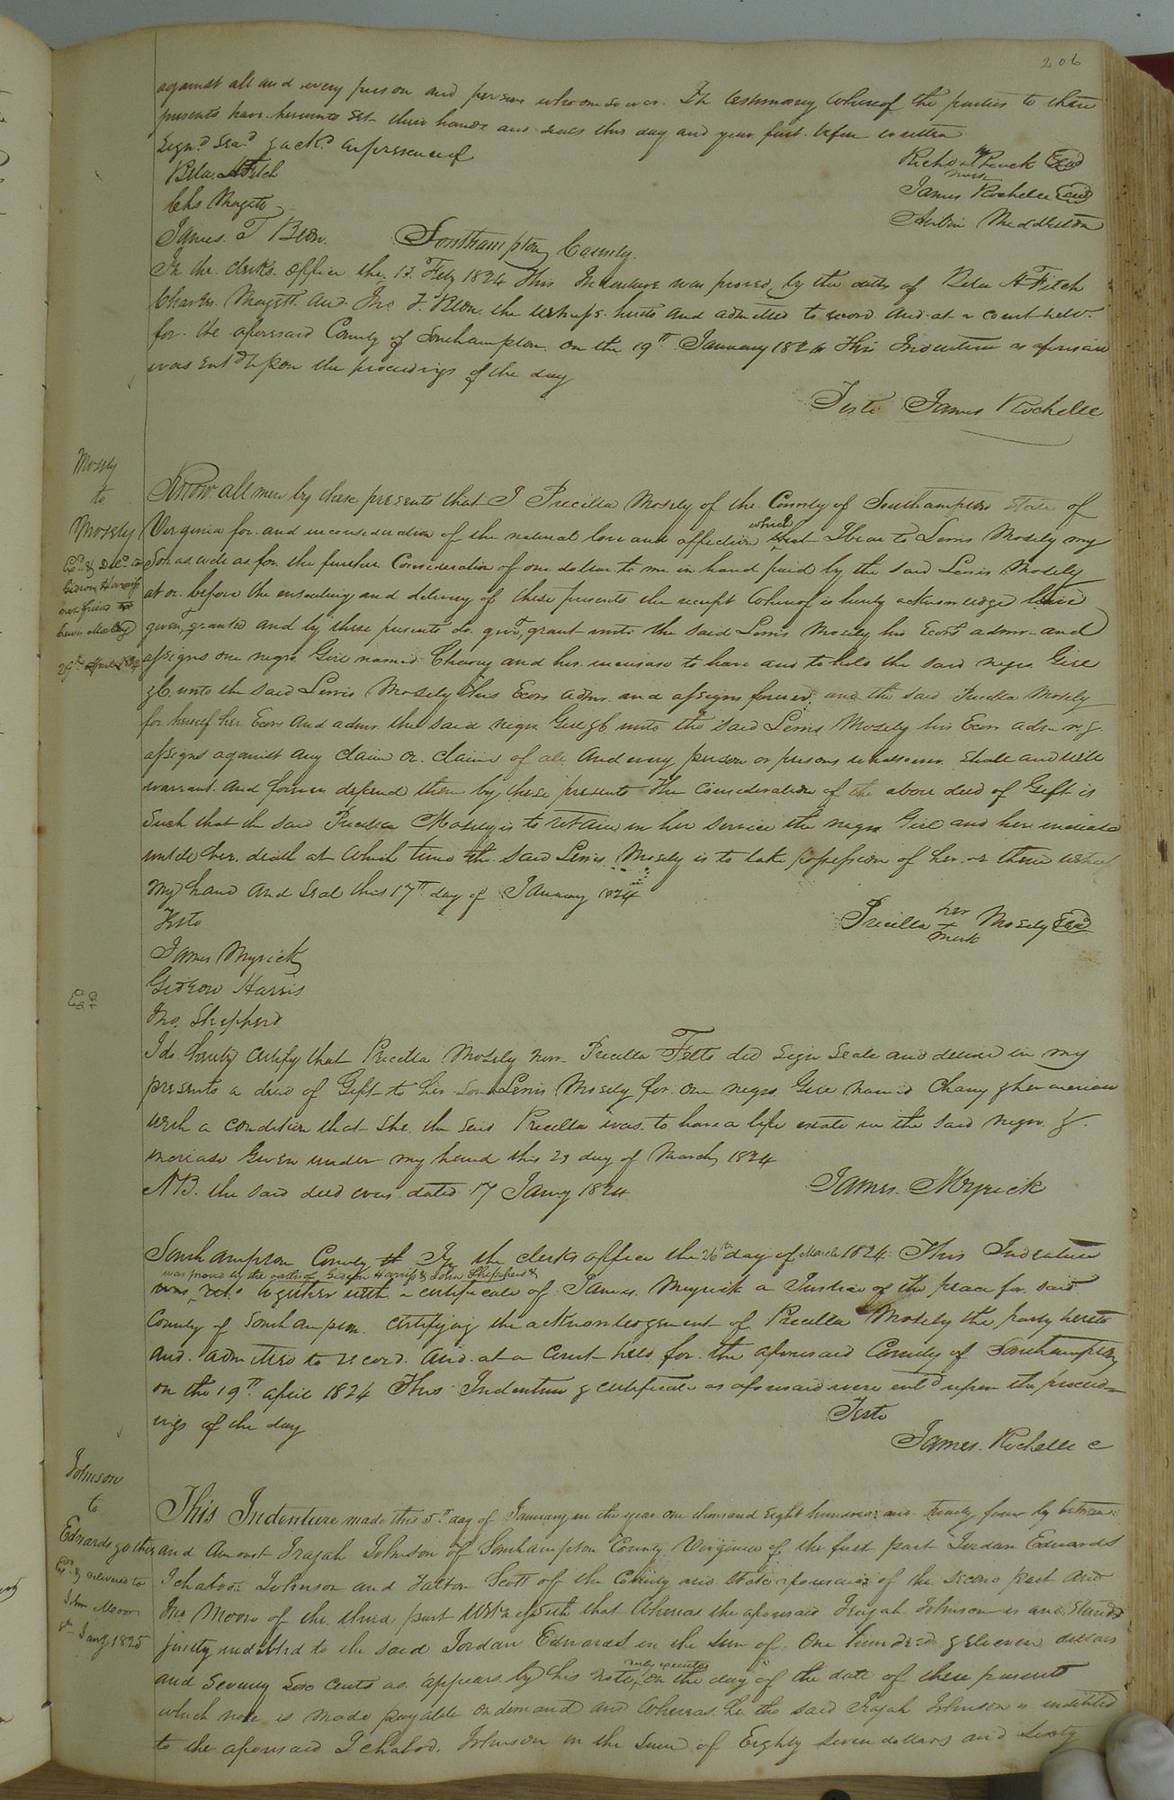 206
against all and every person and persons whomsoever. In testimony whereof the parties to these
presents have hereunto set their hands and seals this day and year first before written
Sign.d Sea.d & ack.d in presence of
Richd Pnuck Seal
Chs Magett
mark
James Rochelle Seal
James. T Bton.
Southampton County.
In the clerks office the 12. Feby 1824 This Indenture was proved by the oaths of
Charles. Magett. and the witnesses hereto and admitted to record and at a court held
for the aforesaid County of Southampton on the 19th January 1824 This Indenture as aforesaid
was Ent.d upon the proceedings of the day
Teste James Rochelle
Mosely
to
Mosely
29th April 1824
Know all men by these presents that I Precilla Mosely of the County of Southampton State of
Virginia for and in consideration of the natural love and affection which I bear to Lewis Mosely my
Son as well as for the further Consideration of one dollar to me in hand paid by the said Lewis Mosely
at or before the ensealing and delivery of these presents the receipt whereof is hereby acknowledge have
given, granted and by these presents do give, grant unto the said Lewis Mosely his Exors admrs and
assigns one negro Girl named Chany and her increase to have and to hold the said negro Girl
&c unto the said Lewis Mosely his Exors adms. and assigns forever, and the said Precilla Mosely
for herself her Exors and adms the said negro Girl &c unto the said Lewis Mosely his Exors adms &
assigns against any claim or claims of all and every person or persons whatsoever shall and will
warrant and forever defend them by these presents The Consideration of the above deed of Gift is
Such that the said Precilla Mosely is to retain in her service the negro Girl and her increase
until her death at which time the said Lewis Mosely is to take possession of her or them witness
my hand and Seal this 17th day of January 1824
Teste
Precilla her + mark Mosely Seal
James Myrick
Gideon Harris
Jno. Shepherd
Ex.d
I do hereby certify that Precilla Mosely now Precilla Felts did sign Seale and deliver in my
presents a deed of Gift to her son Lewis Mosely for one negro Girl named Chany & her increase
with a condition that she the said Precilla was to have a life estate in the said negro &
increase Given under my hand this 23 day of March 1824
NB. the said deed was dated 17 Jany 1824
James. Myrick
Southampton County In the clerks office the 26th day of March 1824 This Indenture
was proved by the oaths of Gideon Harriss & John Shepherd &
was together with a certificate of James. Myrick a Justice of the peace for said
County of Southampton. certifying the acknowledgement of Precilla Mosely the party hereto
and admitted to record. And at a Court held for the aforesaid County of Southampton
on the 19th april 1824 This Indenture & certificate as aforesaid were ent.d upon the proceed-
ings of the day
Teste
James. Rochelle C
Johnson
to
Edwards & others
John Moore
Jany 1825
This Indenture made this 5th day of January in the year one thousand eight hundred and twenty four by between
and Amonst Irajah Johnson of Southampton County Virginia of the first part Jordan Edwards
Ichabod Johnson and Scott of the County and State aforesaid of the second part and
Jno Moore of the third part Witnesseth that Whereas the aforesaid Irajah Johnson is and stands
justly indebted to the said Jordan Edwards in the sum of One hundred & eleven dollars
and Seventy two cents as appears by his note, duly executed on the day of the date of these presents
which note is made payable on demand and Whereas he the said Irajah Johnson is indebted
to the aforesaid Ichabod. Johnson in the Sum of Eighty Seven dollars and sixty